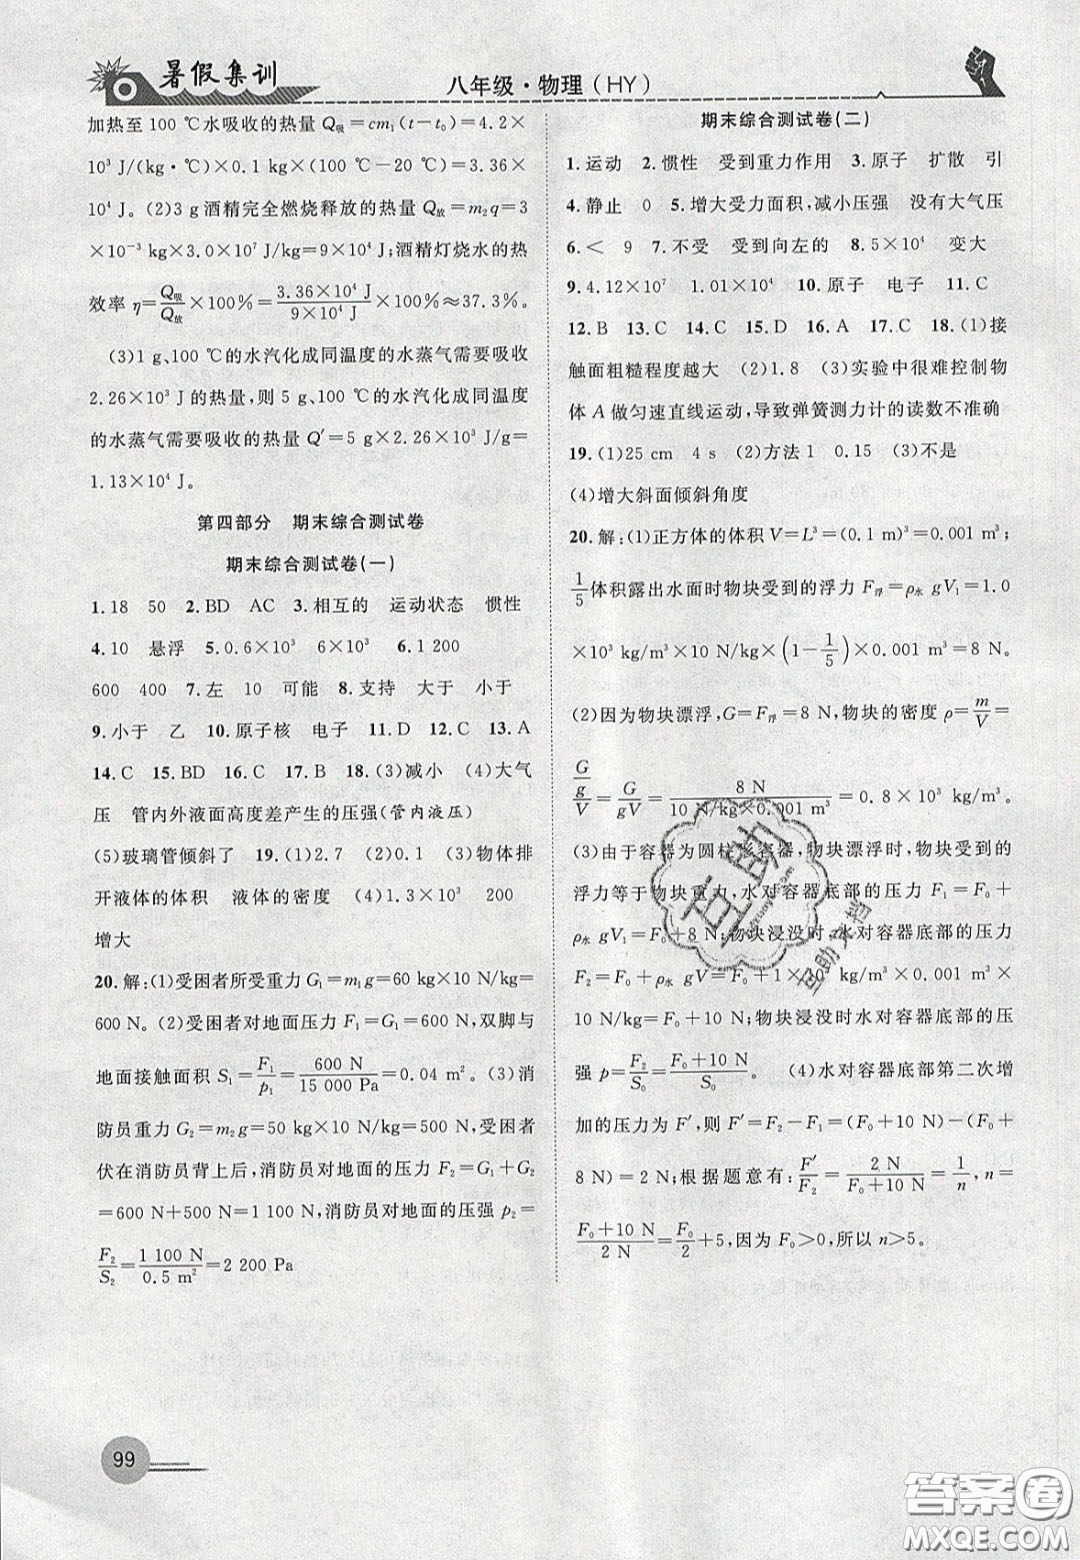 暑假集训
八年级·物理(HY)
加热至 100 ℃水吸收的热量 Q吸=cm₁(t-t₀)=4.2×
10³ J/(kg·℃)×0.1 kg×(100℃-20 ℃)=3.36×
10⁴ J。(2)3 g酒精完全燃烧释放的热量 Q放=m₂q=3
×10⁻³ kg×3.0×10⁷ J/kg=9×10⁴ J;酒精灯烧水的热
效率 η=Q吸/Q放×100%=3.36×10⁴ J/9×10⁴ J×100%≈37.3%。
(3)1 g、100 ℃的水汽化成同温度的水蒸气需要吸收
2.26×10³ J的热量,则 5 g、100 ℃的水汽化成同温度
的水蒸气需要吸收的热量 Q′=5 g×2.26×10³ J/g=
1.13×10⁴ J。
第四部分 期末综合测试卷
期末综合测试卷(一)
1.18 50 2.BD AC 3.相互的 运动状态 惯性
4.10 悬浮 5.0.6×10³ 6×10³ 6.1 200
600 400 7.左 10 可能 8.支持 大于 小于
9.小于 乙 10.原子核 电子 11.D 12.C 13.A
14.C 15.BD 16.C 17.BD 18.(3)减小 (4)大气
压 管内外液面高度差产生的压强(管内液压)
(5)玻璃管倾斜了 19.(1)2.7 (2)0.1 (3)物体排
开液体的体积 液体的密度 (4)1.3×10³ 200
增大
20.解:(1)受困者所受重力 G₁=m₁g=60 kg×10 N/kg=
600 N。(2)受困者对地面压力 F₁=G₁=600 N,双脚与
地面接触面积 S₁=F₁/p₁=600 N/15 000 Pa=0.04 m²。(3)消
防员重力 G₂=m₂g=50 kg×10 N/kg=500 N,受困者
伏在消防员背上后,消防员对地面的压力 F₂=G₁+G₂
=600 N+500 N=1 100 N,消防员对地面的压强 p₂=
F₂/S₂=1 100 N/0.5 m²=2 200 Pa
期末综合测试卷(二)
1.运动 2.惯性 受到重力作用 3.原子 扩散 引
4.静止 0 5.增大受力面积,减小压强 没有大气压
6.< 9 7.不受 受到向左的 8.5×10⁴ 变大
9.4.12×10⁷ 1.01×10⁴ 10.原子 电子 11.C
12.B 13.C 14.C 15.D 16.A 17.C 18.(1)接
触面粗糙程度越大 (2)1.8 (3)实验中很难控制物
体 A 做匀速直线运动,导致弹簧测力计的读数不准确
19.(1)25 cm 4 s (2)方法1 0.15 (3)不是
(4)增大斜面倾斜角度
20.解:(1)正方体的体积 V=L³=(0.1 m)³=0.001 m³;
1/5体积露出水面时物块受到的浮力 F浮=ρ水 gV₁=1.0
×10³ kg/m³×10 N/kg×(1-1/5)×0.001 m³=8 N。
(2)因为物块漂浮,G=F浮=8 N,物块的密度 ρ=m/V=
G/g/V=G/gV=8 N/10 N/kg×0.001 m³=0.8×10³ kg/m³。
(3)由于容器为圆柱形容器,物块漂浮时,物块受到的
浮力等于物块重力,水对容器底部的压力 F₁=F₀+
ρ水 gV₁=F₀+8 N;物块浸没时,水对容器底部的压力
F₂=F₀+ρ水 gV=F₀+1×10³ kg/m³×0.001 m³×
10 N/kg=F₀+10 N;物块浸没时水对容器底部的压
强 p=F₂/S₀=F₀+10 N/S₀。 (4)水对容器底部第二次增
加的压力为 F′,则 F′=F₂-F₁=(F₀+10 N)-(F₀+
8 N)=2 N;根据题意有:F′/F₂=2 N/F₀+10 N=1/n,n=
F₀+10 N/2 N=F₀/2+5,因为 F₀>0,所以 n>5。
互助
互助文档
99
答案圈
MXQE.COM